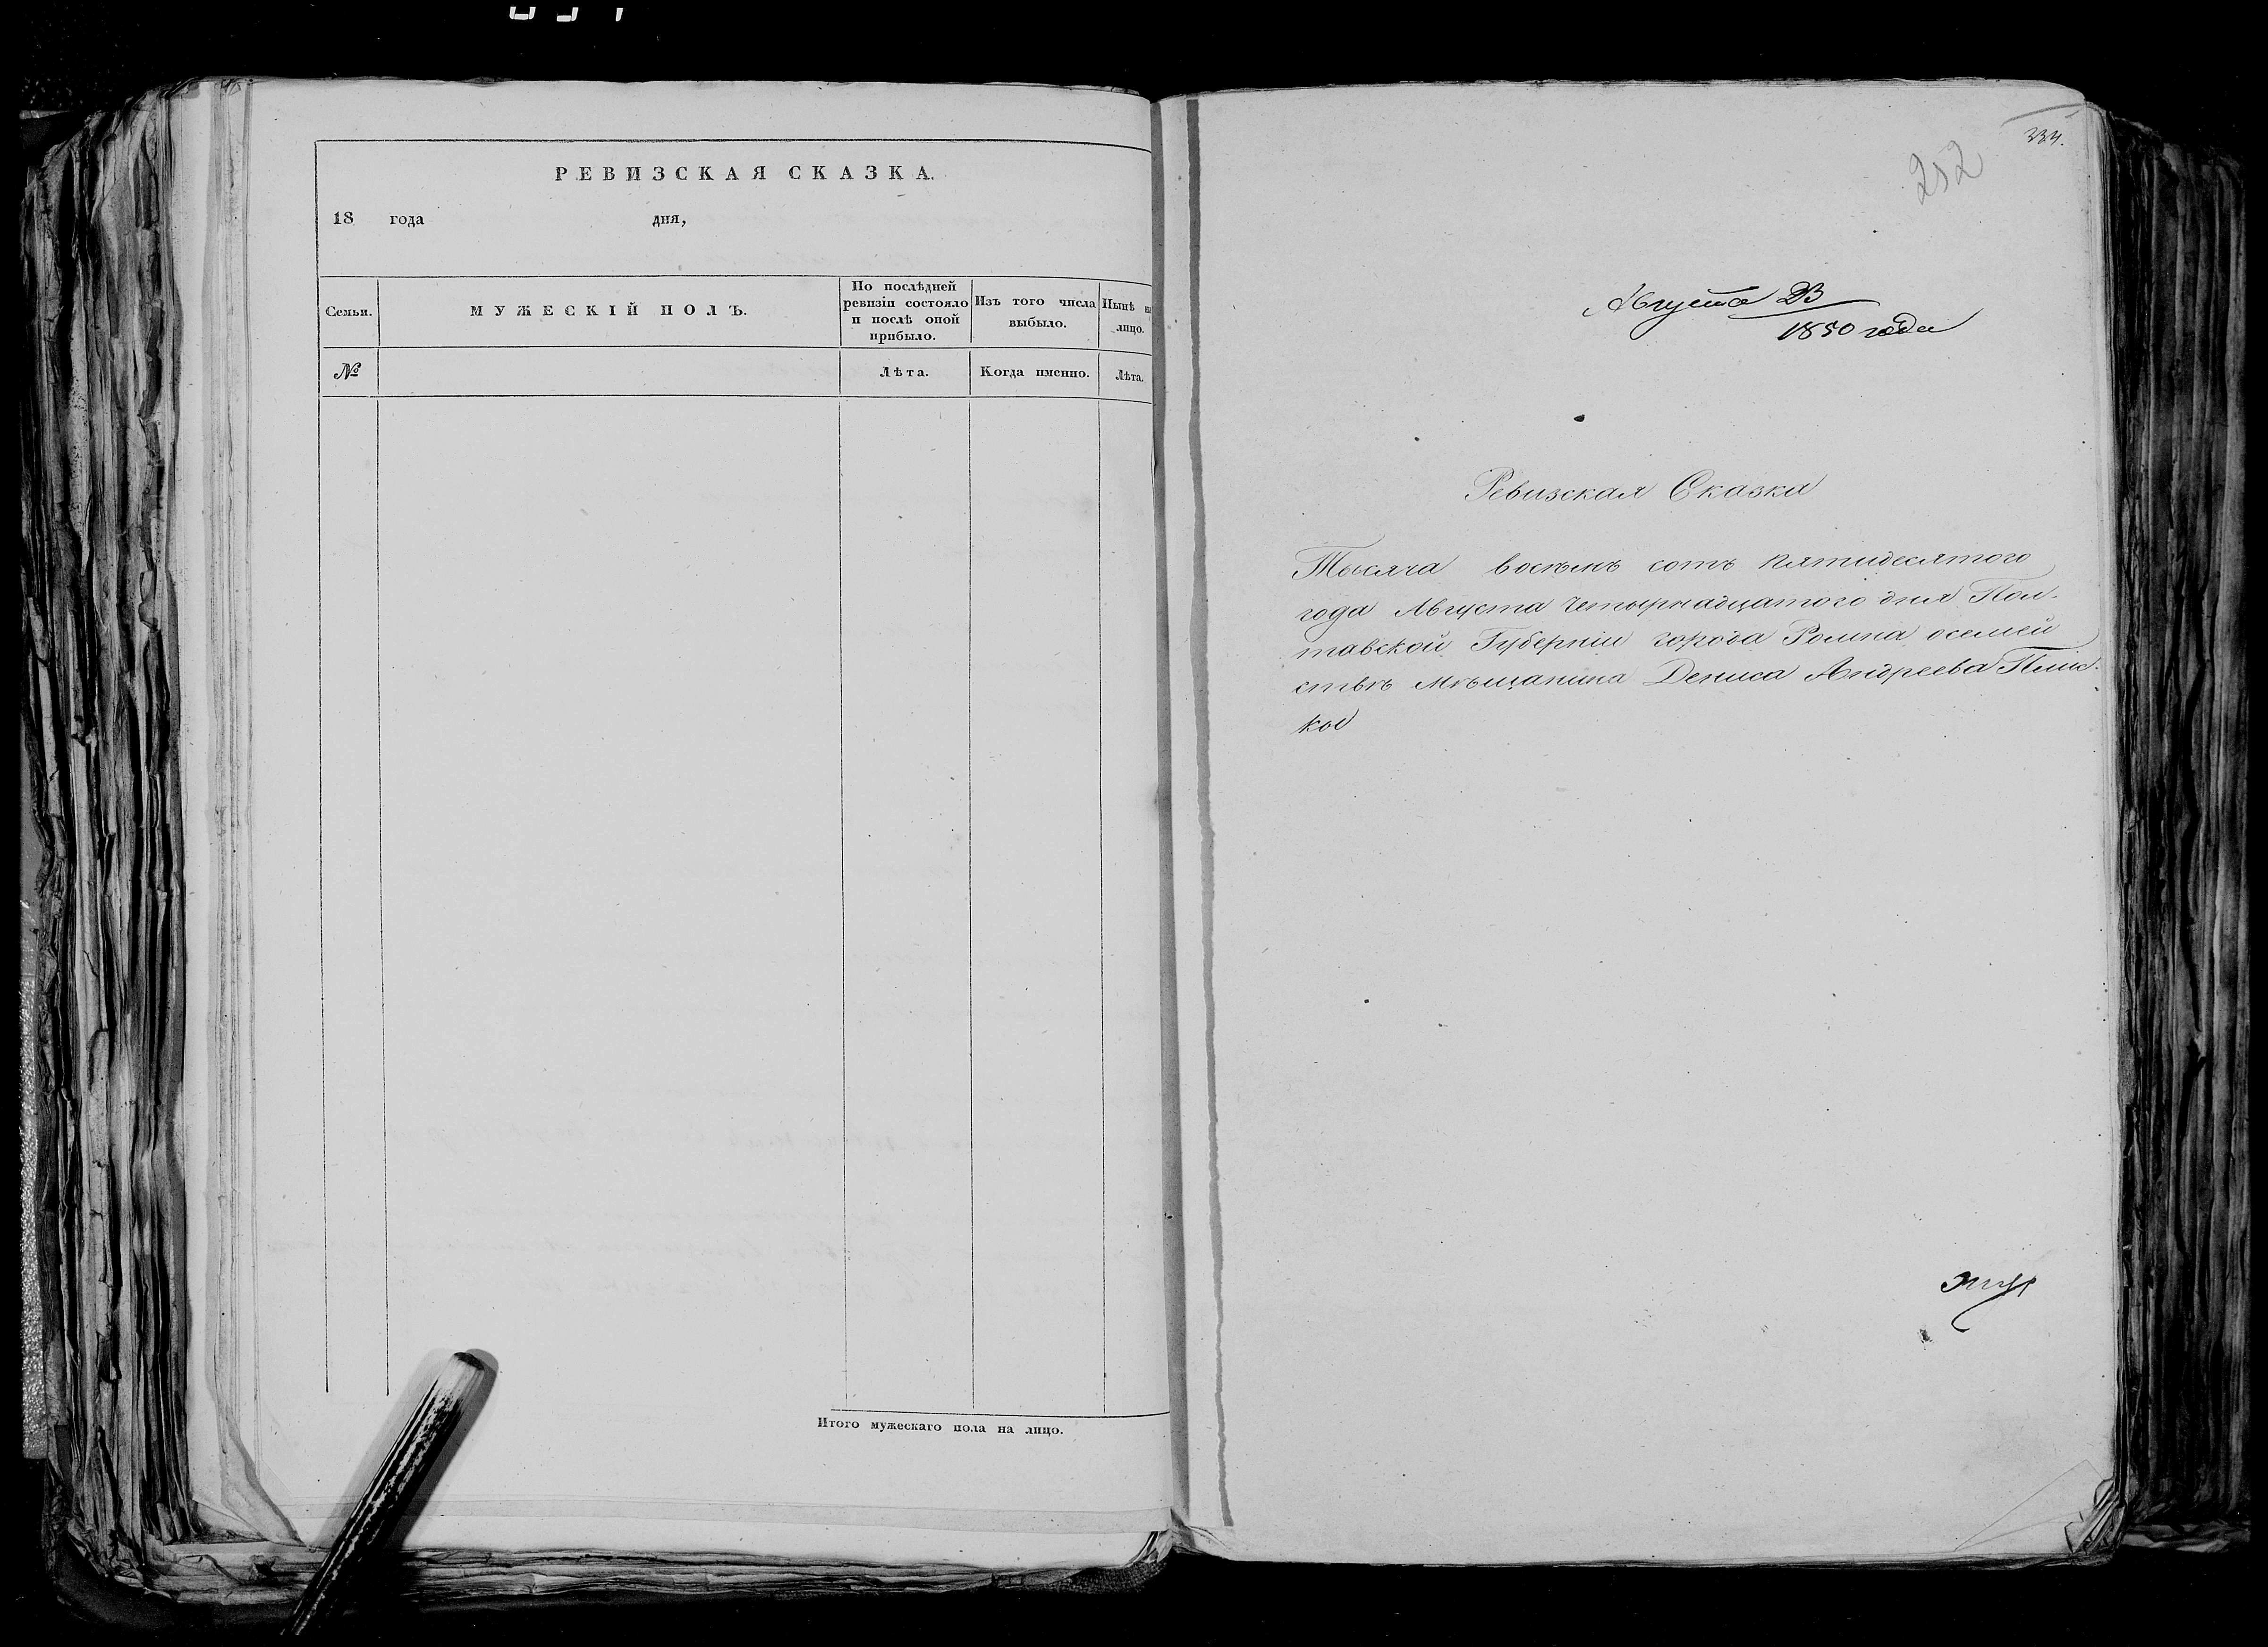 РЕВИЗСКАЯ СКАЗКА.
18 года дня,
Семьи.
МУЖЕСКІЙ ПОЛЪ.
По послѣдней
ревизіи состояло
и послѣ оной
прибыло.
Изъ того числа
выбыло.
Нынѣ на
лицо.
№
Лѣта.
Когда именно.
Лѣта.
Итого мужескаго пола на лицо.
334.
252
Августа 23
1850 года
Ревизская Сказка
Тысяча восѣмъ сотъ пятидесятого
года Августа четырнадцатого дня Пол-
тавской Губерніи города Ромна осемей
ствѣ мѣщанина Дениса Андреева